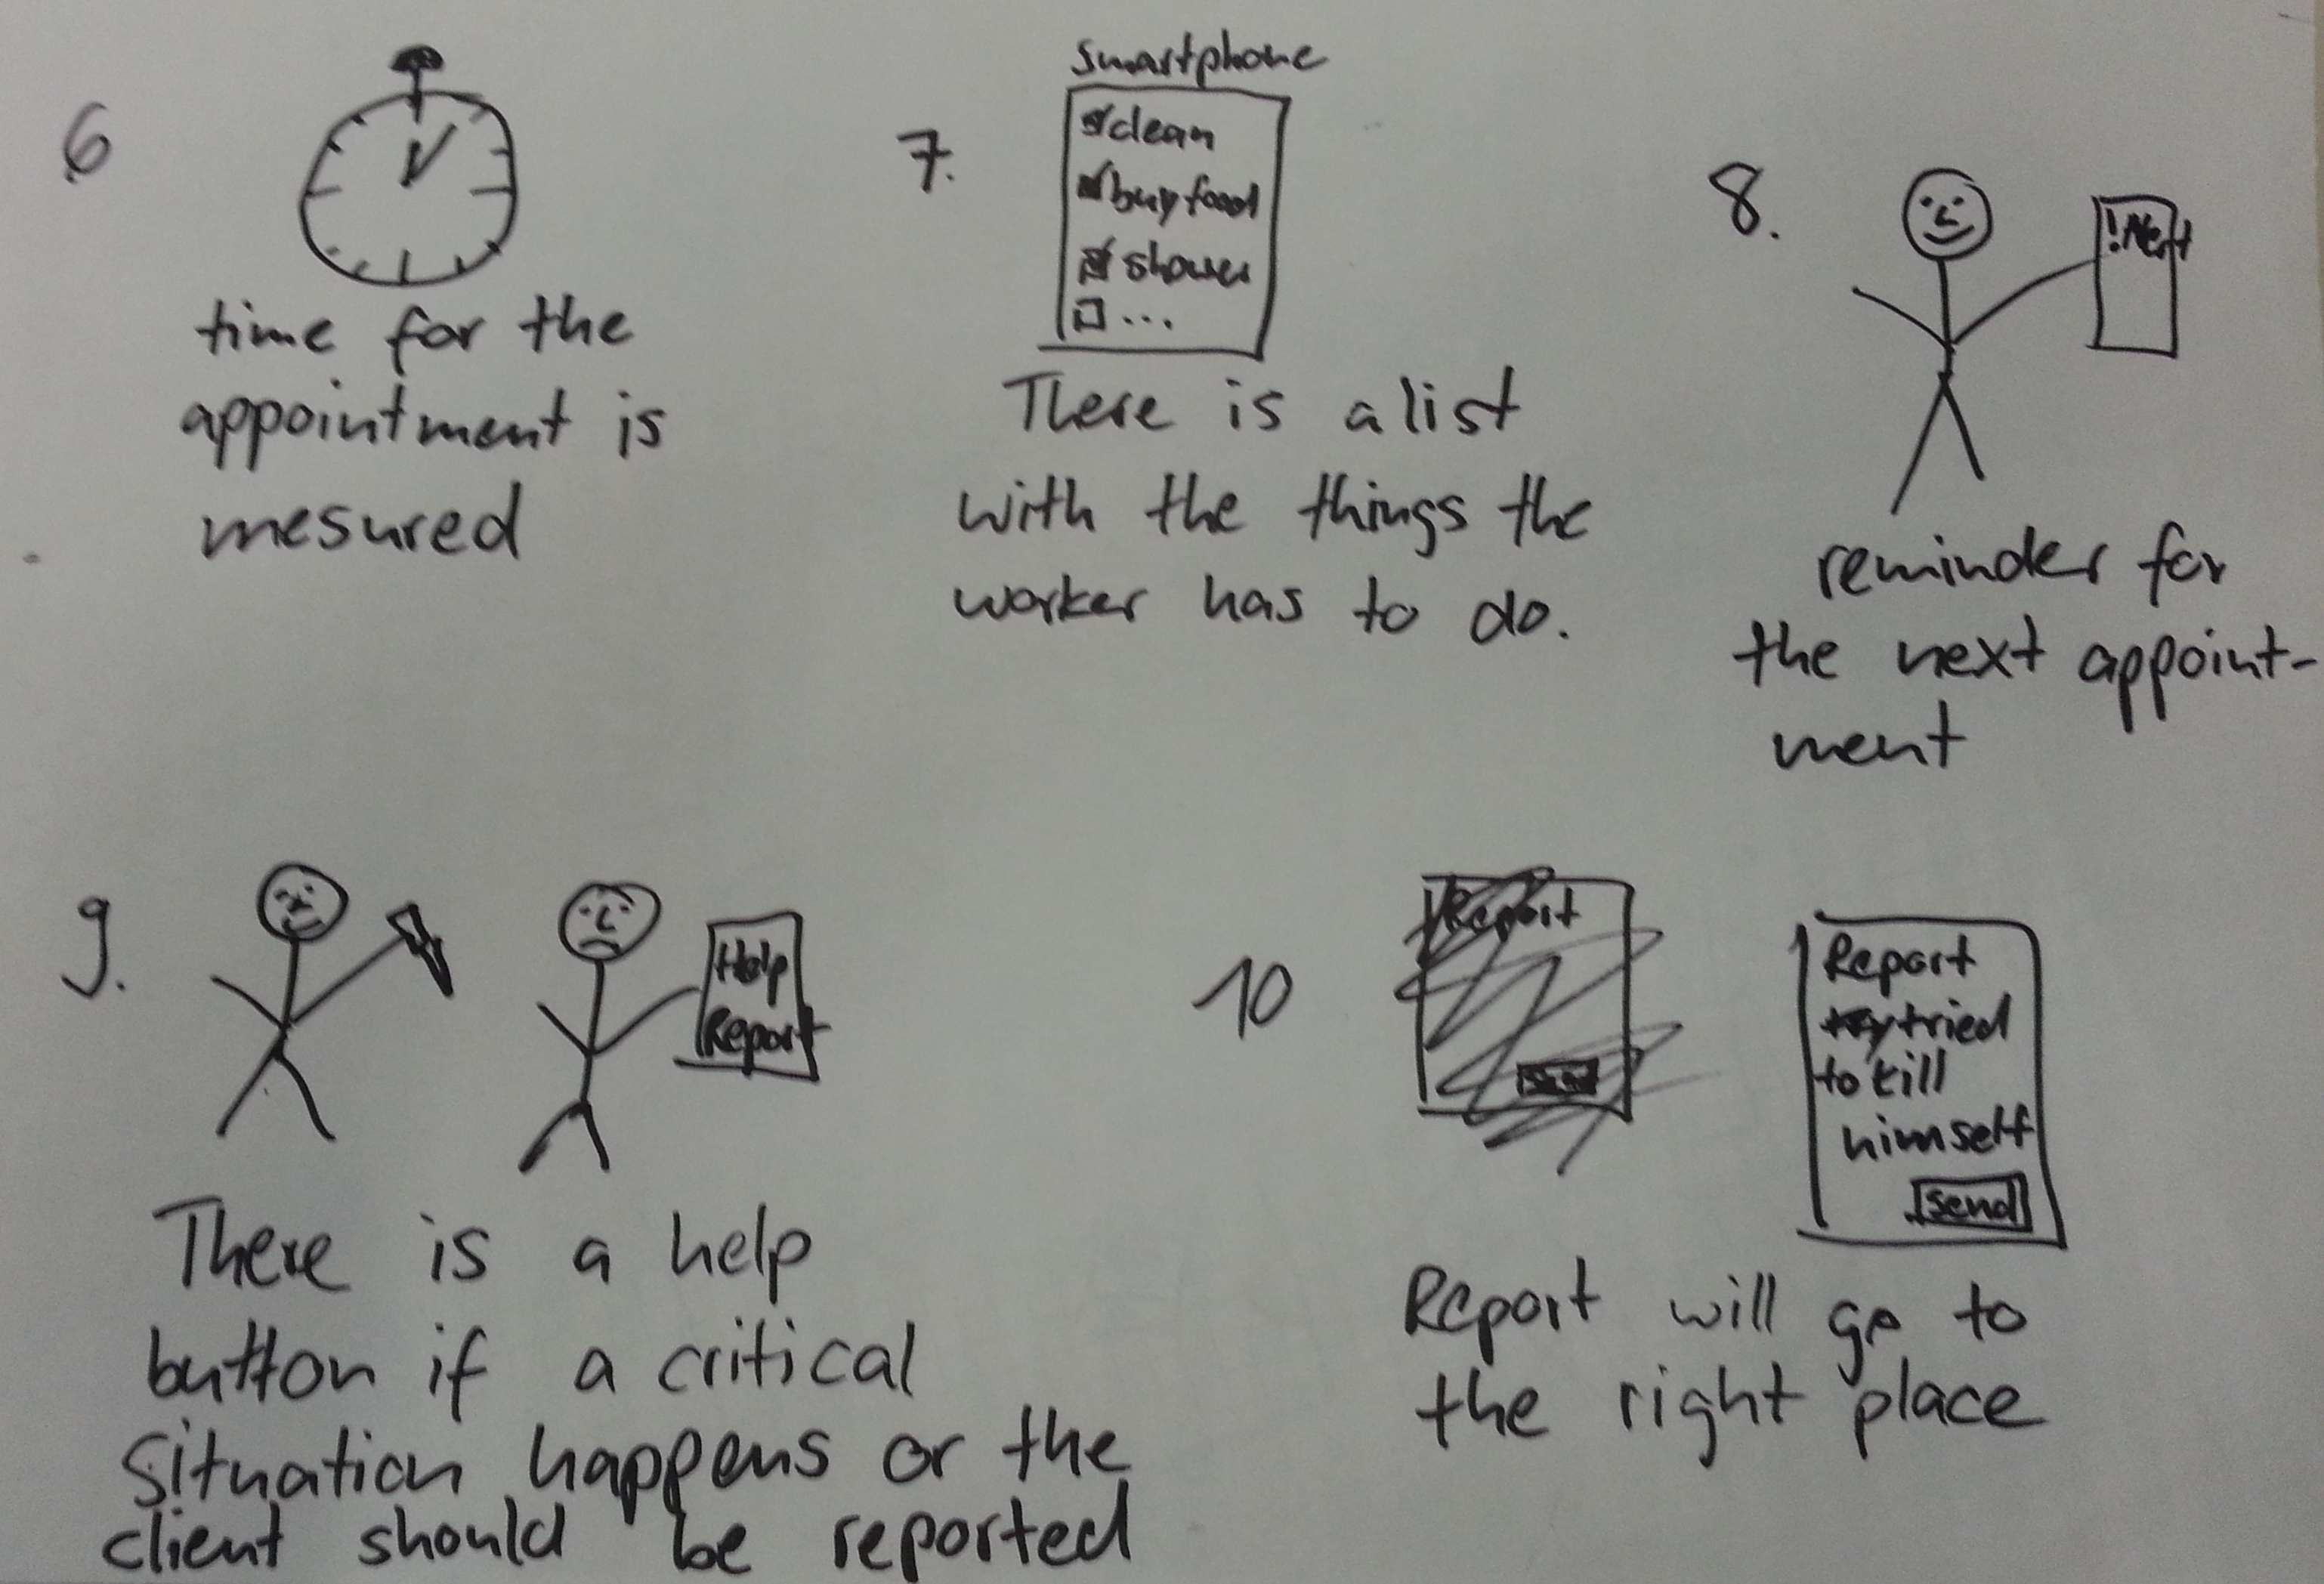 6
time for the
appointment is
mesured
7.
smartphone
clean
buy food
shower
...
There is a list
with the things the
worker has to do.
8.
!Alert
reminder for
the next appoint-
ment
9.
Help
Report
There is a help
button if a critical
situation happens or the
client should be reported
10
Report
Send
Report
try tried
to kill
himself
Send
Report will go to
the right place